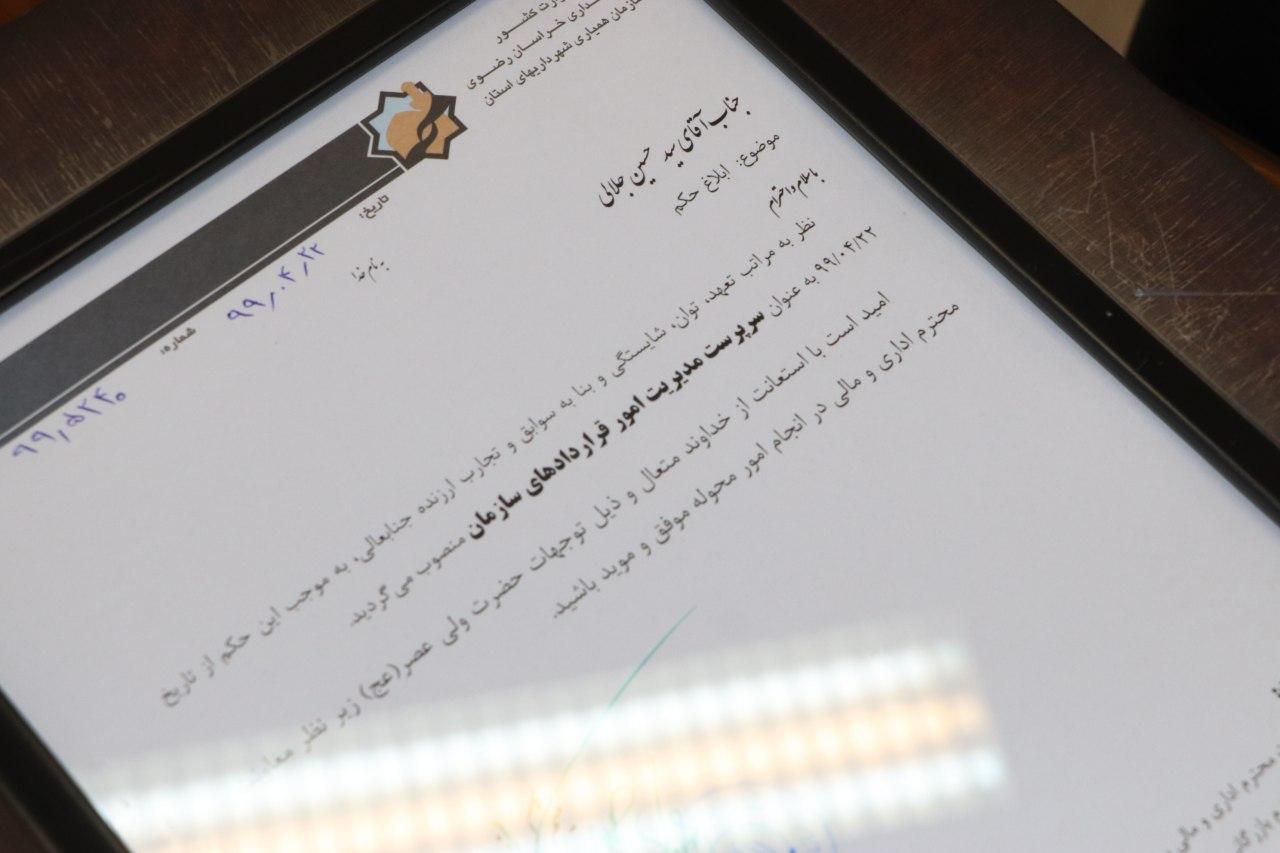 کشور
خراسان رضوی
سازمان همیاری شهرداریهای استان
تاریخ:
۹۹٫۰۴٫۲۲
شماره:
۹۹٫۵۲۴۰
بنام خدا
جناب آقای سید حسین جلالی
موضوع: ابلاغ حکم
باسلام و احترام
نظر به مراتب تعهد، توان، شایستگی و بنا به سوابق و تجارب ارزنده جنابعالی، به موجب این حکم از تاریخ
۹۹/۰۴/۲۲ به عنوان سرپرست مدیریت امور قراردادهای سازمان منصوب می‌گردید.
امید است با استعانت از خداوند متعال و ذیل توجهات حضرت ولی عصر(عج) زیر نظر
محترم اداری و مالی در انجام امور محوله موفق و موید باشید.
محترم اداری و مالی